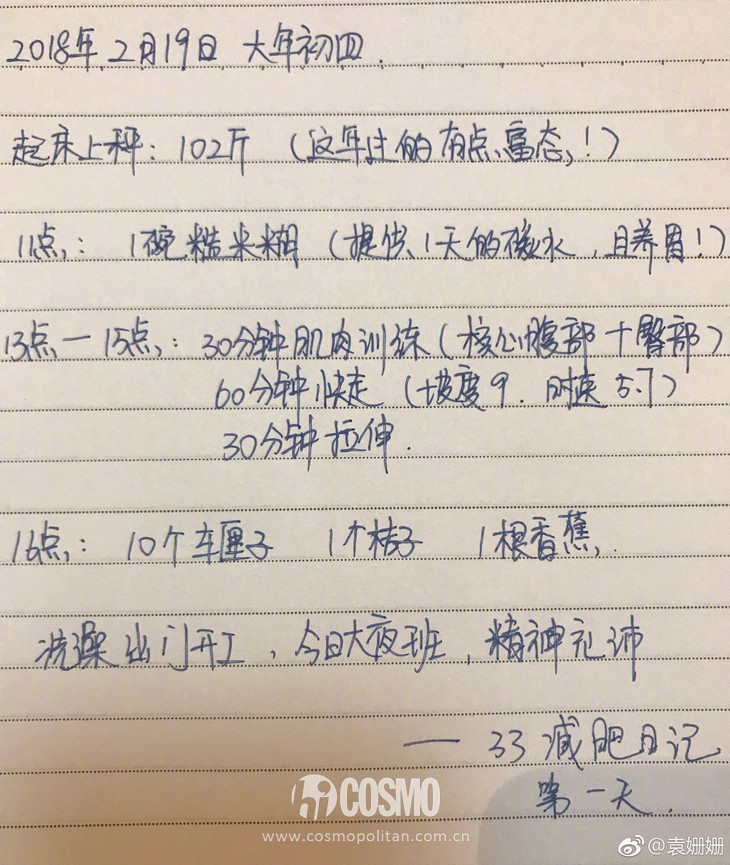 2018年2月19日 大年初四.
起床上秤：102斤（这年过的有点富态！）
11点：1碗糙米糊（提供1天的碳水，且养胃！）
13点—15点：30分钟肌肉训练（核心腹部+臀部）
60分钟快走（坡度9. 时速5.7）
30分钟拉伸.
16点：10个车厘子 1个桔子 1根香蕉.
洗澡出门开工，今日大夜班，精神充沛
—— 33减肥日记
第一天.
COSMO
www.cosmopolitan.com.cn
@袁姗姗